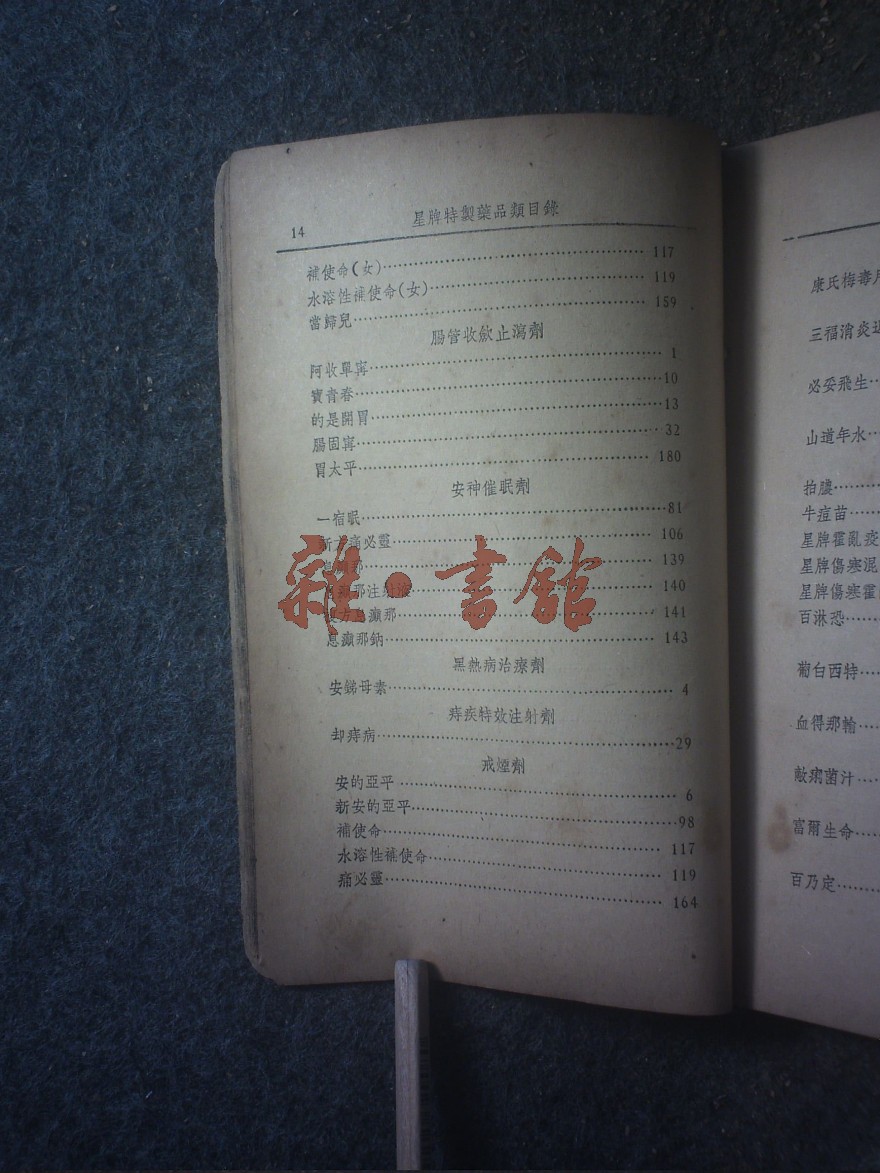 14
星牌特製藥品類目錄
補使命(女)……117
水溶性補使命(女)……119
當歸兒……159
腸管收斂止瀉劑
阿收單寗……1
寶青春……10
的是開胃……13
腸固寗……32
胃太平……180
安神催眠劑
一宿眠……81
新方痛必靈……106
那……139
那注射液……140
方息癲那……141
息癲那鈉……143
黑熱病治療劑
安銻母素……4
痔疾特效注射劑
却痔病……29
戒煙劑
安的亞平……6
新安的亞平……98
補使命……117
水溶性補使命……119
痛必靈……164
雜·書館
康氏梅毒
三福消炎
必妥飛生
山道年水
拍膿
牛痘苗
星牌霍亂疫
星牌傷寒混
星牌傷寒霍
百淋恐
葡白西特
血得那輸
敵痢菌汁
富爾生命
百乃定